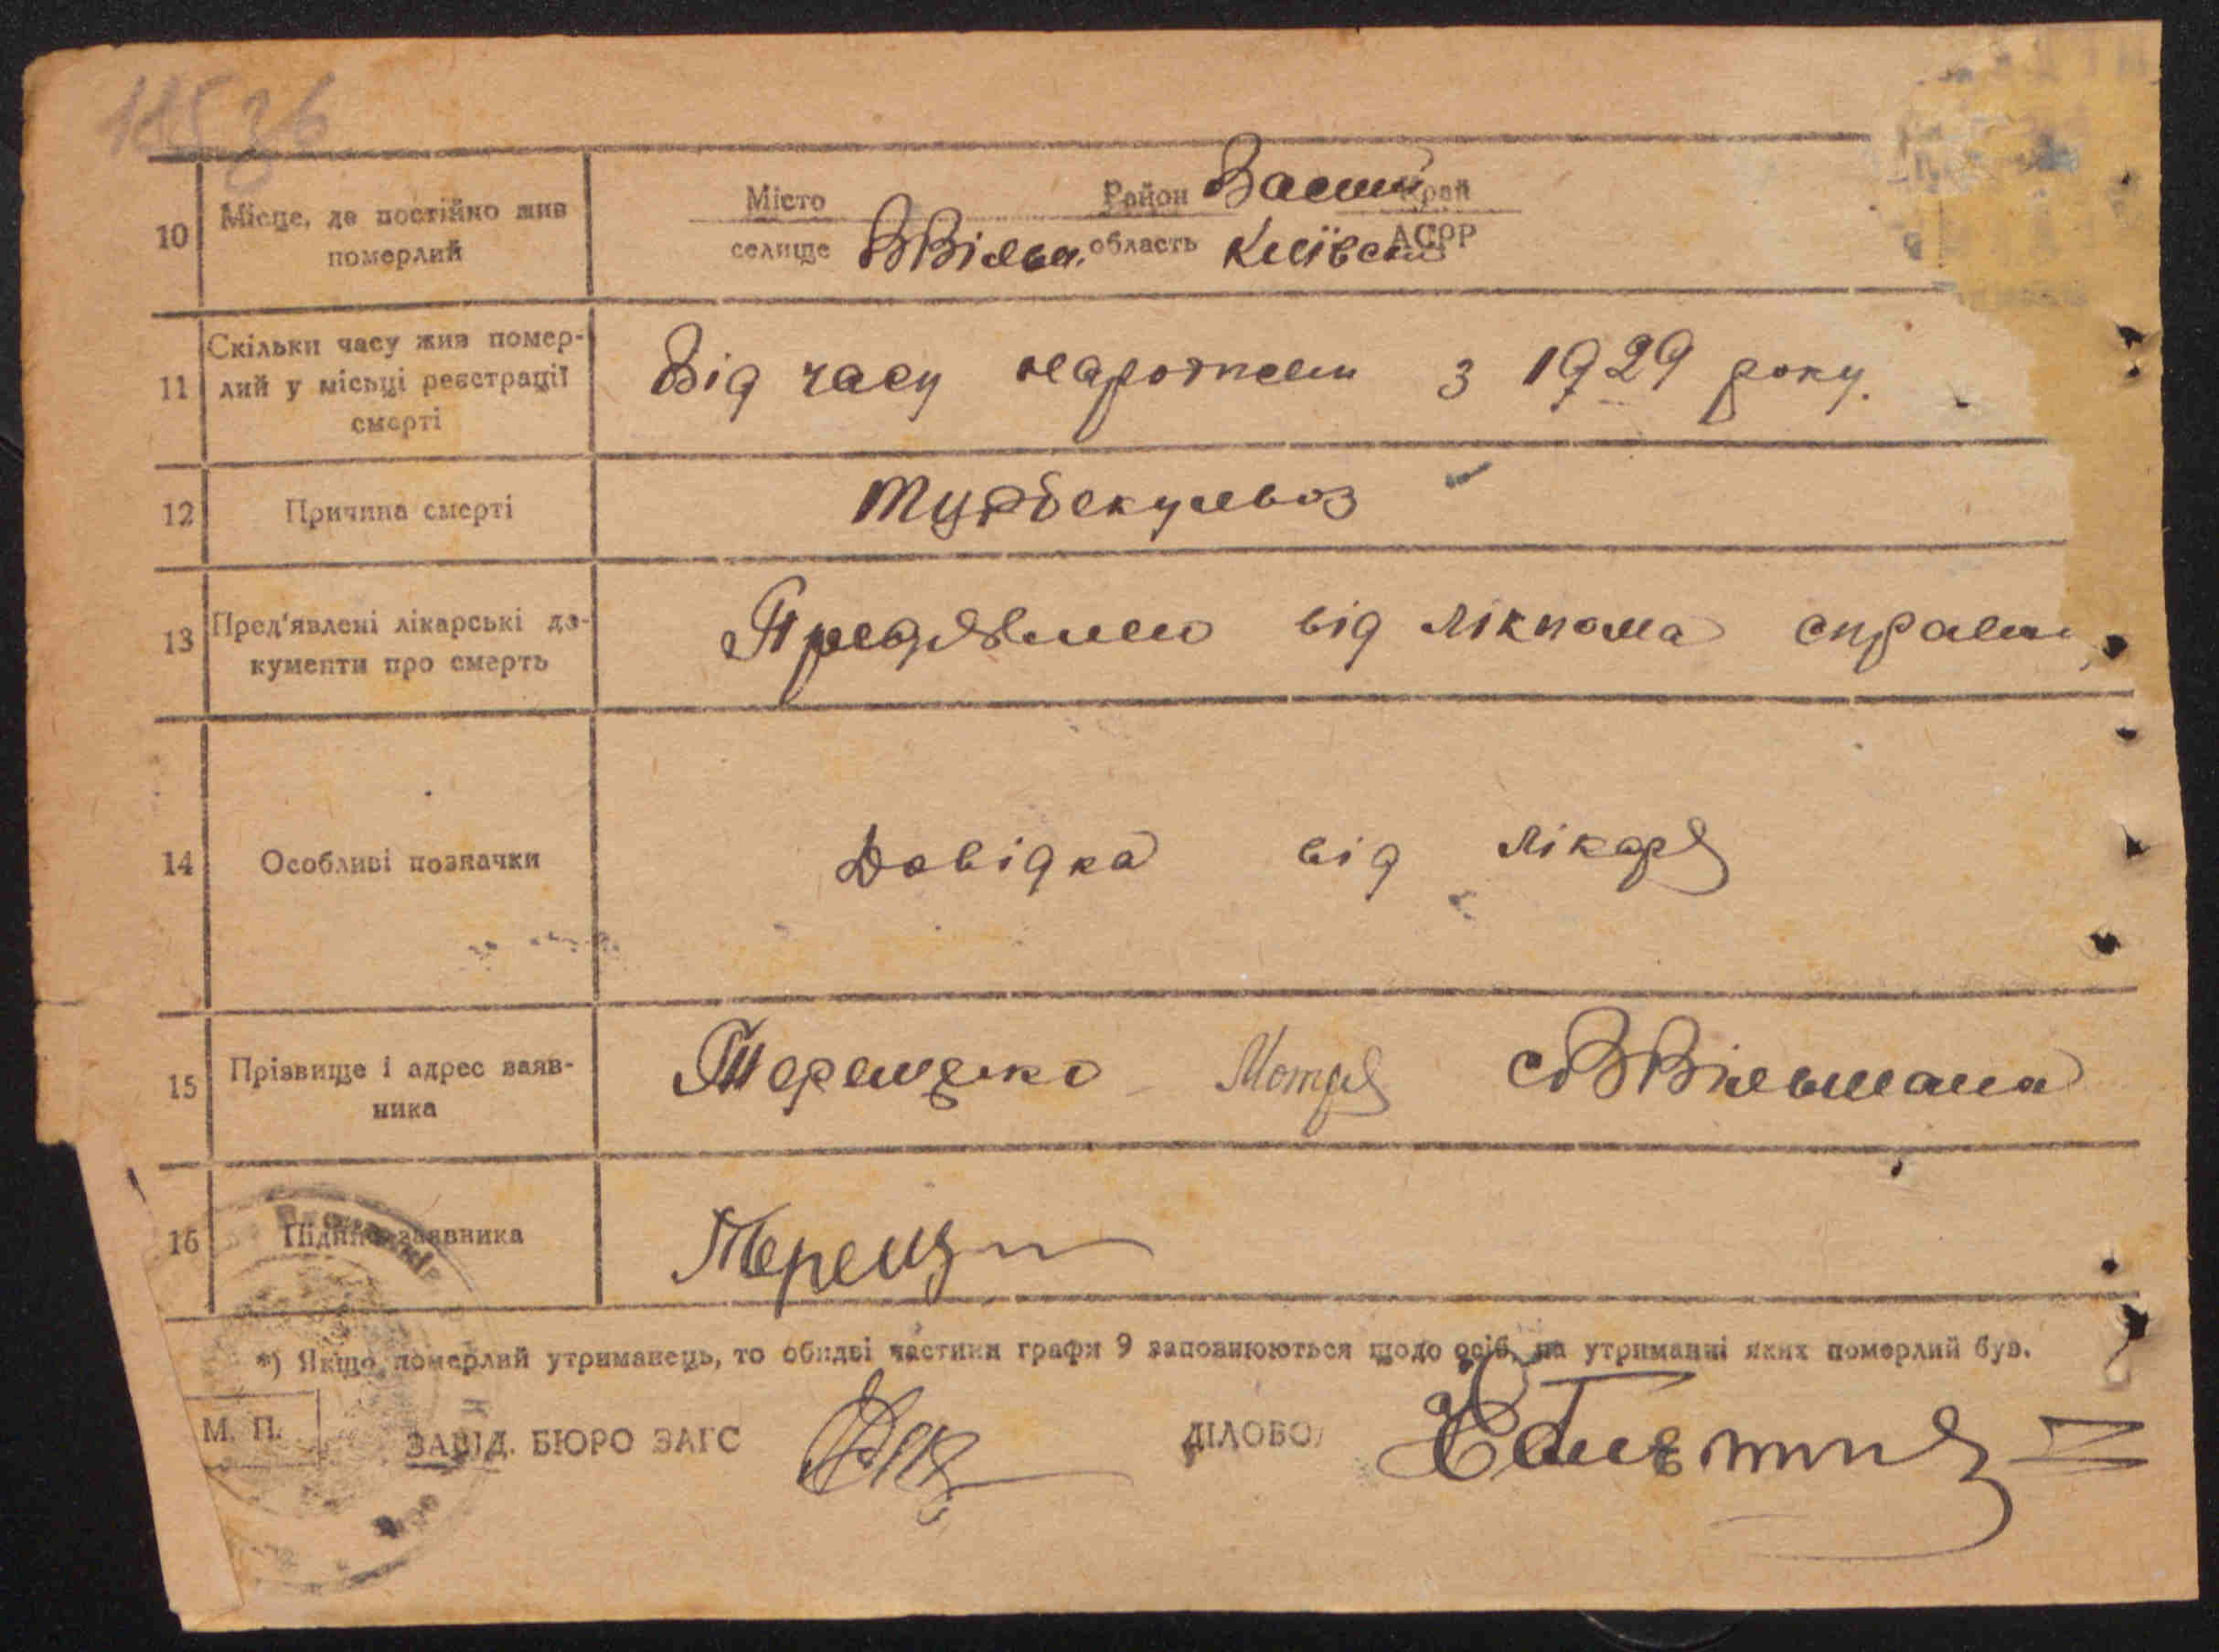 11536
10 Місце, де постійно жив померлий
Місто Район Край
селище ВВільш. область Київськ АСРР
11 Скільки часу жив помер-
лий у місьці реєстрації
смерті
Від часу народження з 1929 року.
12 Причина смерті Турбекульоз
13 Пред'явлені лікарські до-
кументи про смерть
Предявлено від лікпома
14 Особливі позначки Довідка від лікаря
15 Прізвище і адрес заяв-
ника
Терещенко Мотря с ВВільшана
16 Підпис заявника Терещ
*) Якщо померлий утриманець, то обидві частини графи 9 заповнюються щодо осіб, на утриманні яких померлий був.
М. П. ЗАВІД. БЮРО ЗАГС ДІЛОВОД